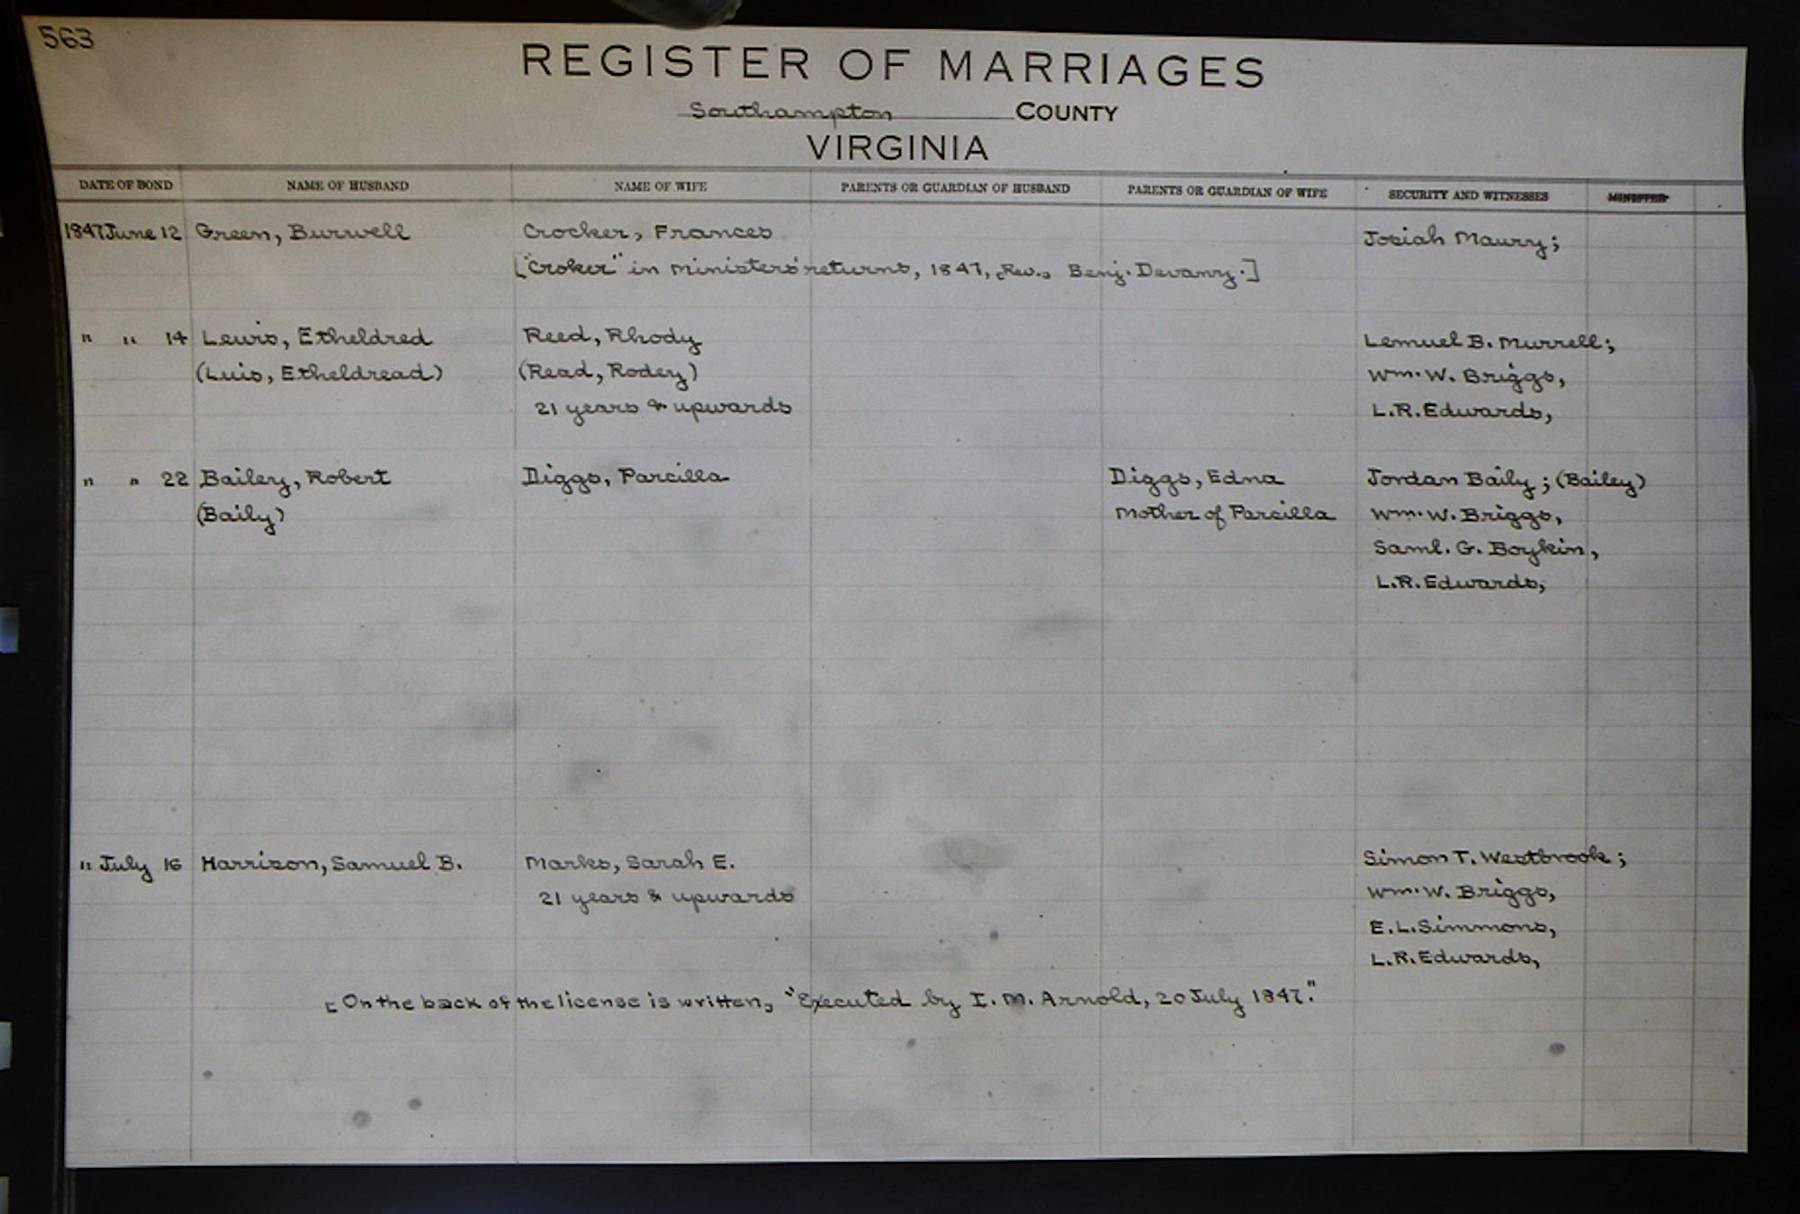 563
REGISTER OF MARRIAGES
Southampton COUNTY
VIRGINIA
DATE OF BOND NAME OF HUSBAND NAME OF WIFE PARENTS OR GUARDIAN OF HUSBAND PARENTS OR GUARDIAN OF WIFE SECURITY AND WITNESSES MINISTER
1847 June 12 Green, Burwell Crocker, Frances Josiah Maury;
["Croker" in ministers' returns, 1847, Rev., Benj. Devanry.]
" " 14 Lewis, Etheldred Reed, Rhody Lemuel B. Murrell;
(Luis, Etheldread) (Read, Rodey) Wm. W. Briggs,
21 years & upwards L.R. Edwards,
" " 22 Bailey, Robert Diggs, Parcilla Diggs, Edna Jordan Baily; (Bailey)
(Baily) Mother of Parcilla Wm. W. Briggs,
Saml. G. Boykin,
L.R. Edwards,
" July 16 Harrison, Samuel B. Marks, Sarah E. Simon T. Westbrook;
21 years & upwards Wm. W. Briggs,
E.L. Simmons,
L.R. Edwards,
[On the back of the license is written, "Executed by I. M. Arnold, 20 July 1847."